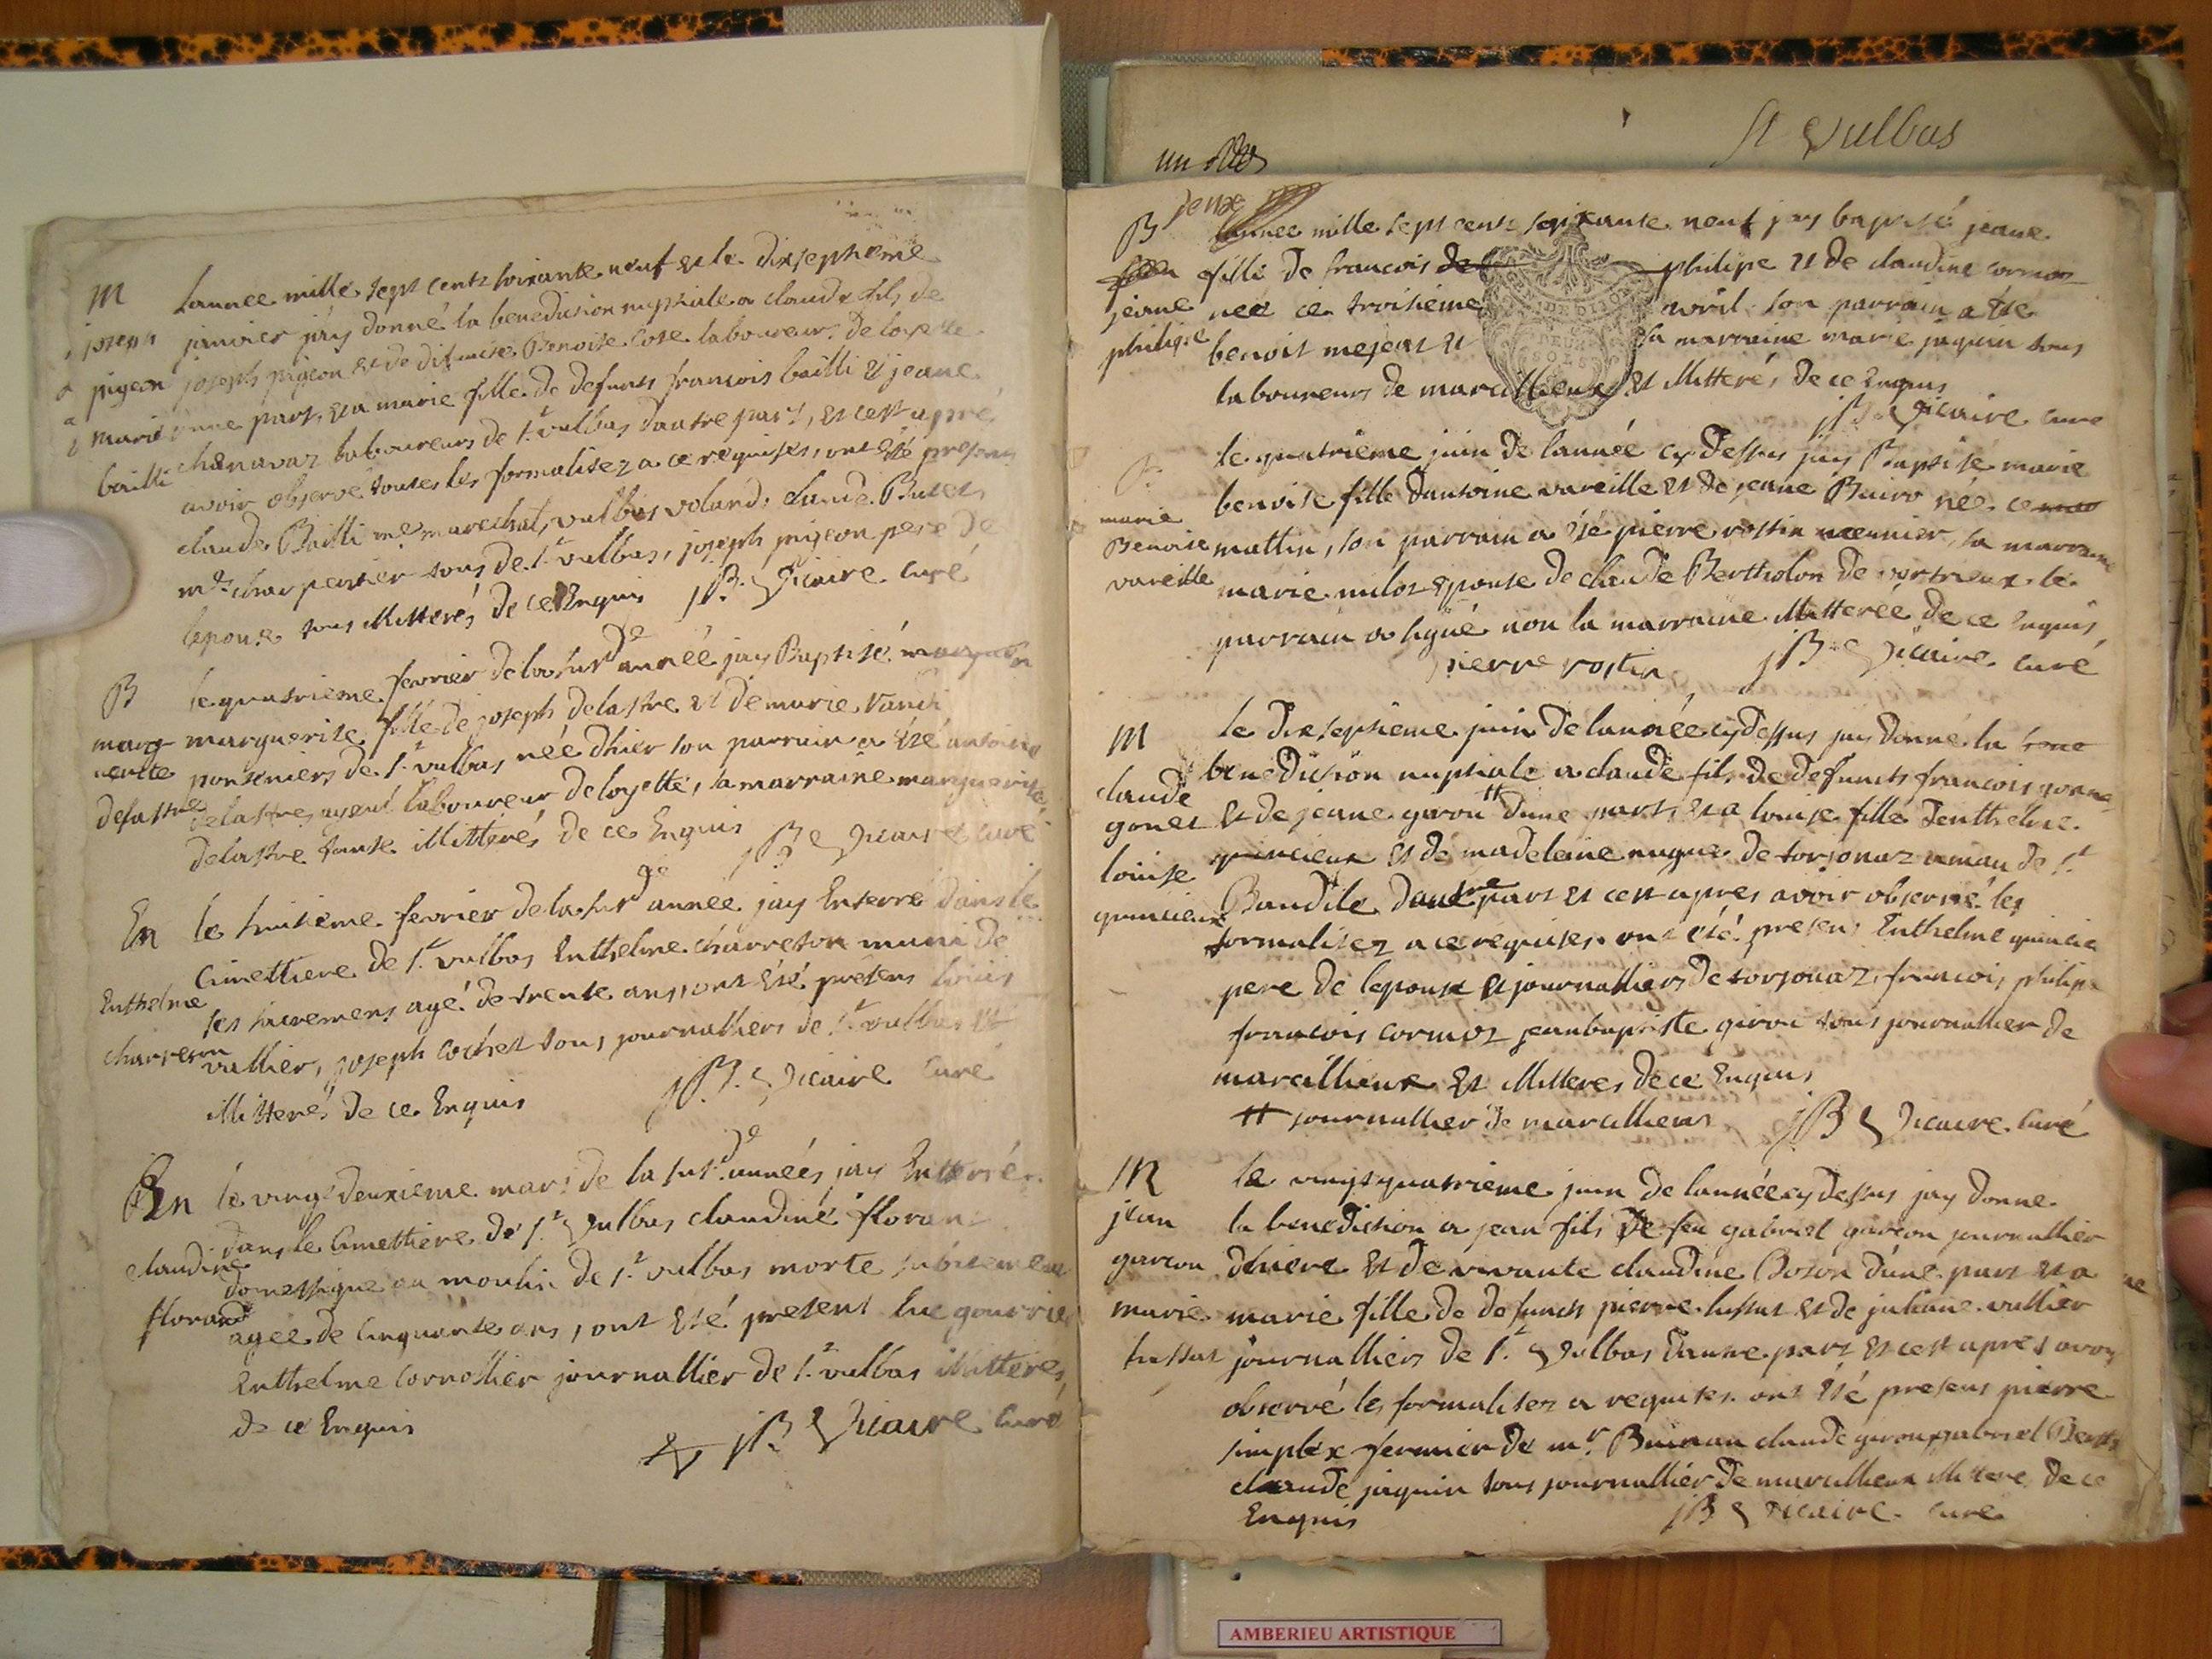 M
joseph
pigeon
marie
bailli
lannee mille sept cents soixante neuf et le dixseptieme
janvier j'ay donné la benediction nuptiale a claude fils de
joseph pigeon et de difuncte Benoite Cose laboureurs de loyette
d'une part, et a marie fille de defunts francois bailli et jeane
chanavaz laboureurs de St vulbas dautre part, et cest apré
avoir observé toutes les formalitez a ce requises, ont été presens
claude Bailli me marechal, vulbas voland, claude Buret
me charpentier tous de St vulbas, joseph pigeon pere de
lepoux tous illitterés de ce Enquis jB Vicaire curé
B
marg
uerite
delastre
le quatrieme fevrier de la susde année jay Baptisé
marguerite fille de joseph delastre et de marie
pontoniers de St vulbas née dhier son parrain a été antoine
delastre, ayeul laboureur de loyette, sa marraine marguerite
delastre tante illitterés de ce Enquis jB Vicaire curé
En
Enthelme
charreton
le huitieme fevrier de la susde année jay Enterré dans le
Cimettiere de St vulbas Enthelme charreton muni de
ses sacremens agé de trente ans, ont été presens louis
vallier, joseph cochet tous journalliers de St vulbas et
illitterés de ce Enquis jB. Vicaire curé
En
claudine
florand
le vingt deuxieme mars de la susde année, jay Enterré
dans le Cimettiere de St Vulbas claudine floran
domestique au moulin de St vulbas morte subitement
agée de cinquante ans, ont été present
Enthelme Cornollier journallier de St vulbas illitterés
de ce Enquis jB Vicaire curé
St Vulbas
un
jeane
B
jeane
philipe
lannee mille sept cents soixante neuf jay baptisé jeane
fille de francois de philipe et de claudine cormoz
née ce troisieme avril son parrain a été
benoit mejeat et sa marraine marie jaquin tous
laboureurs de marcillieux et illitterés de ce Enquis
jB Vicaire curé
B
marie
Benoite
vareille
le quatrieme juin de lannée cy dessus jay Baptisé marie
benoite fille dantoine vareille et de jeane Buiro née ce
mattin, son parrain a été pierre rostin meunier, sa marraine
marie milos epouse de claude Bertholon de
parrain a signé non la marraine illitterée de ce Enquis
pierre rostin jB Vicaire curé
M
claude
gonet
louise
quincieux
le dixseptieme juin de lannée cy dessus jay donné la
benediction nuptiale a claude fils de defuncts francois gonne
et de jeane girou # dune part, et a louise fille denthelme
quincieux et de madeleine nugue de torjonaz aman de St
Baudile dautre part et cest apres avoir observé les
formalitez a ce requises. ont été presens Enthelme quincie
pere de lepouse et journalliers de torjonaz, francois philipe
francois cormoz jeanbaptiste girou tous journallier de
marcillieux et illitteres de ce Enquis
# journallier de marcilliers jB Vicaire curé
M
jean
garcon
marie
tussat
le vingtquatrieme juin de lannée cy dessus jay donne
la benediction a jean fils de feu gabriel garcon journallier
dhiere et de vivante claudine Boson dune part et a
marie fille de defuncts pierre tussut et de juliane vallier
journalliers de St Vulbas dautre part et cest apres avoy
observé les formalitez a requises. ont été presens pierre
simplex fermier de mr. Buinan claude girou, gabriel
claude jaquin tous journallier de marcillieux illittere de ce
Enquis jB Vicaire curé
AMBERIEU ARTISTIQUE